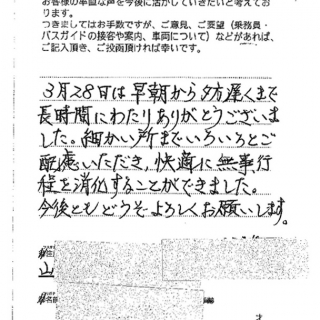 お客様の率直な声を今後に活かしていきたいと考えて
おります。
つきましてはお手数ですが、ご意見、ご要望（乗務員・
バスガイドの接客や案内、車両について）などがあれば、
ご記入頂き、ご投函頂ければ幸いです。
3月28日は早朝から夕方遅くまで
長時間にわたりありがとうございま
した。細かい所までいろいろとご
配慮いただき、快適に無事行
程を消化することができました。
今後ともどうぞよろしくお願いします。
山